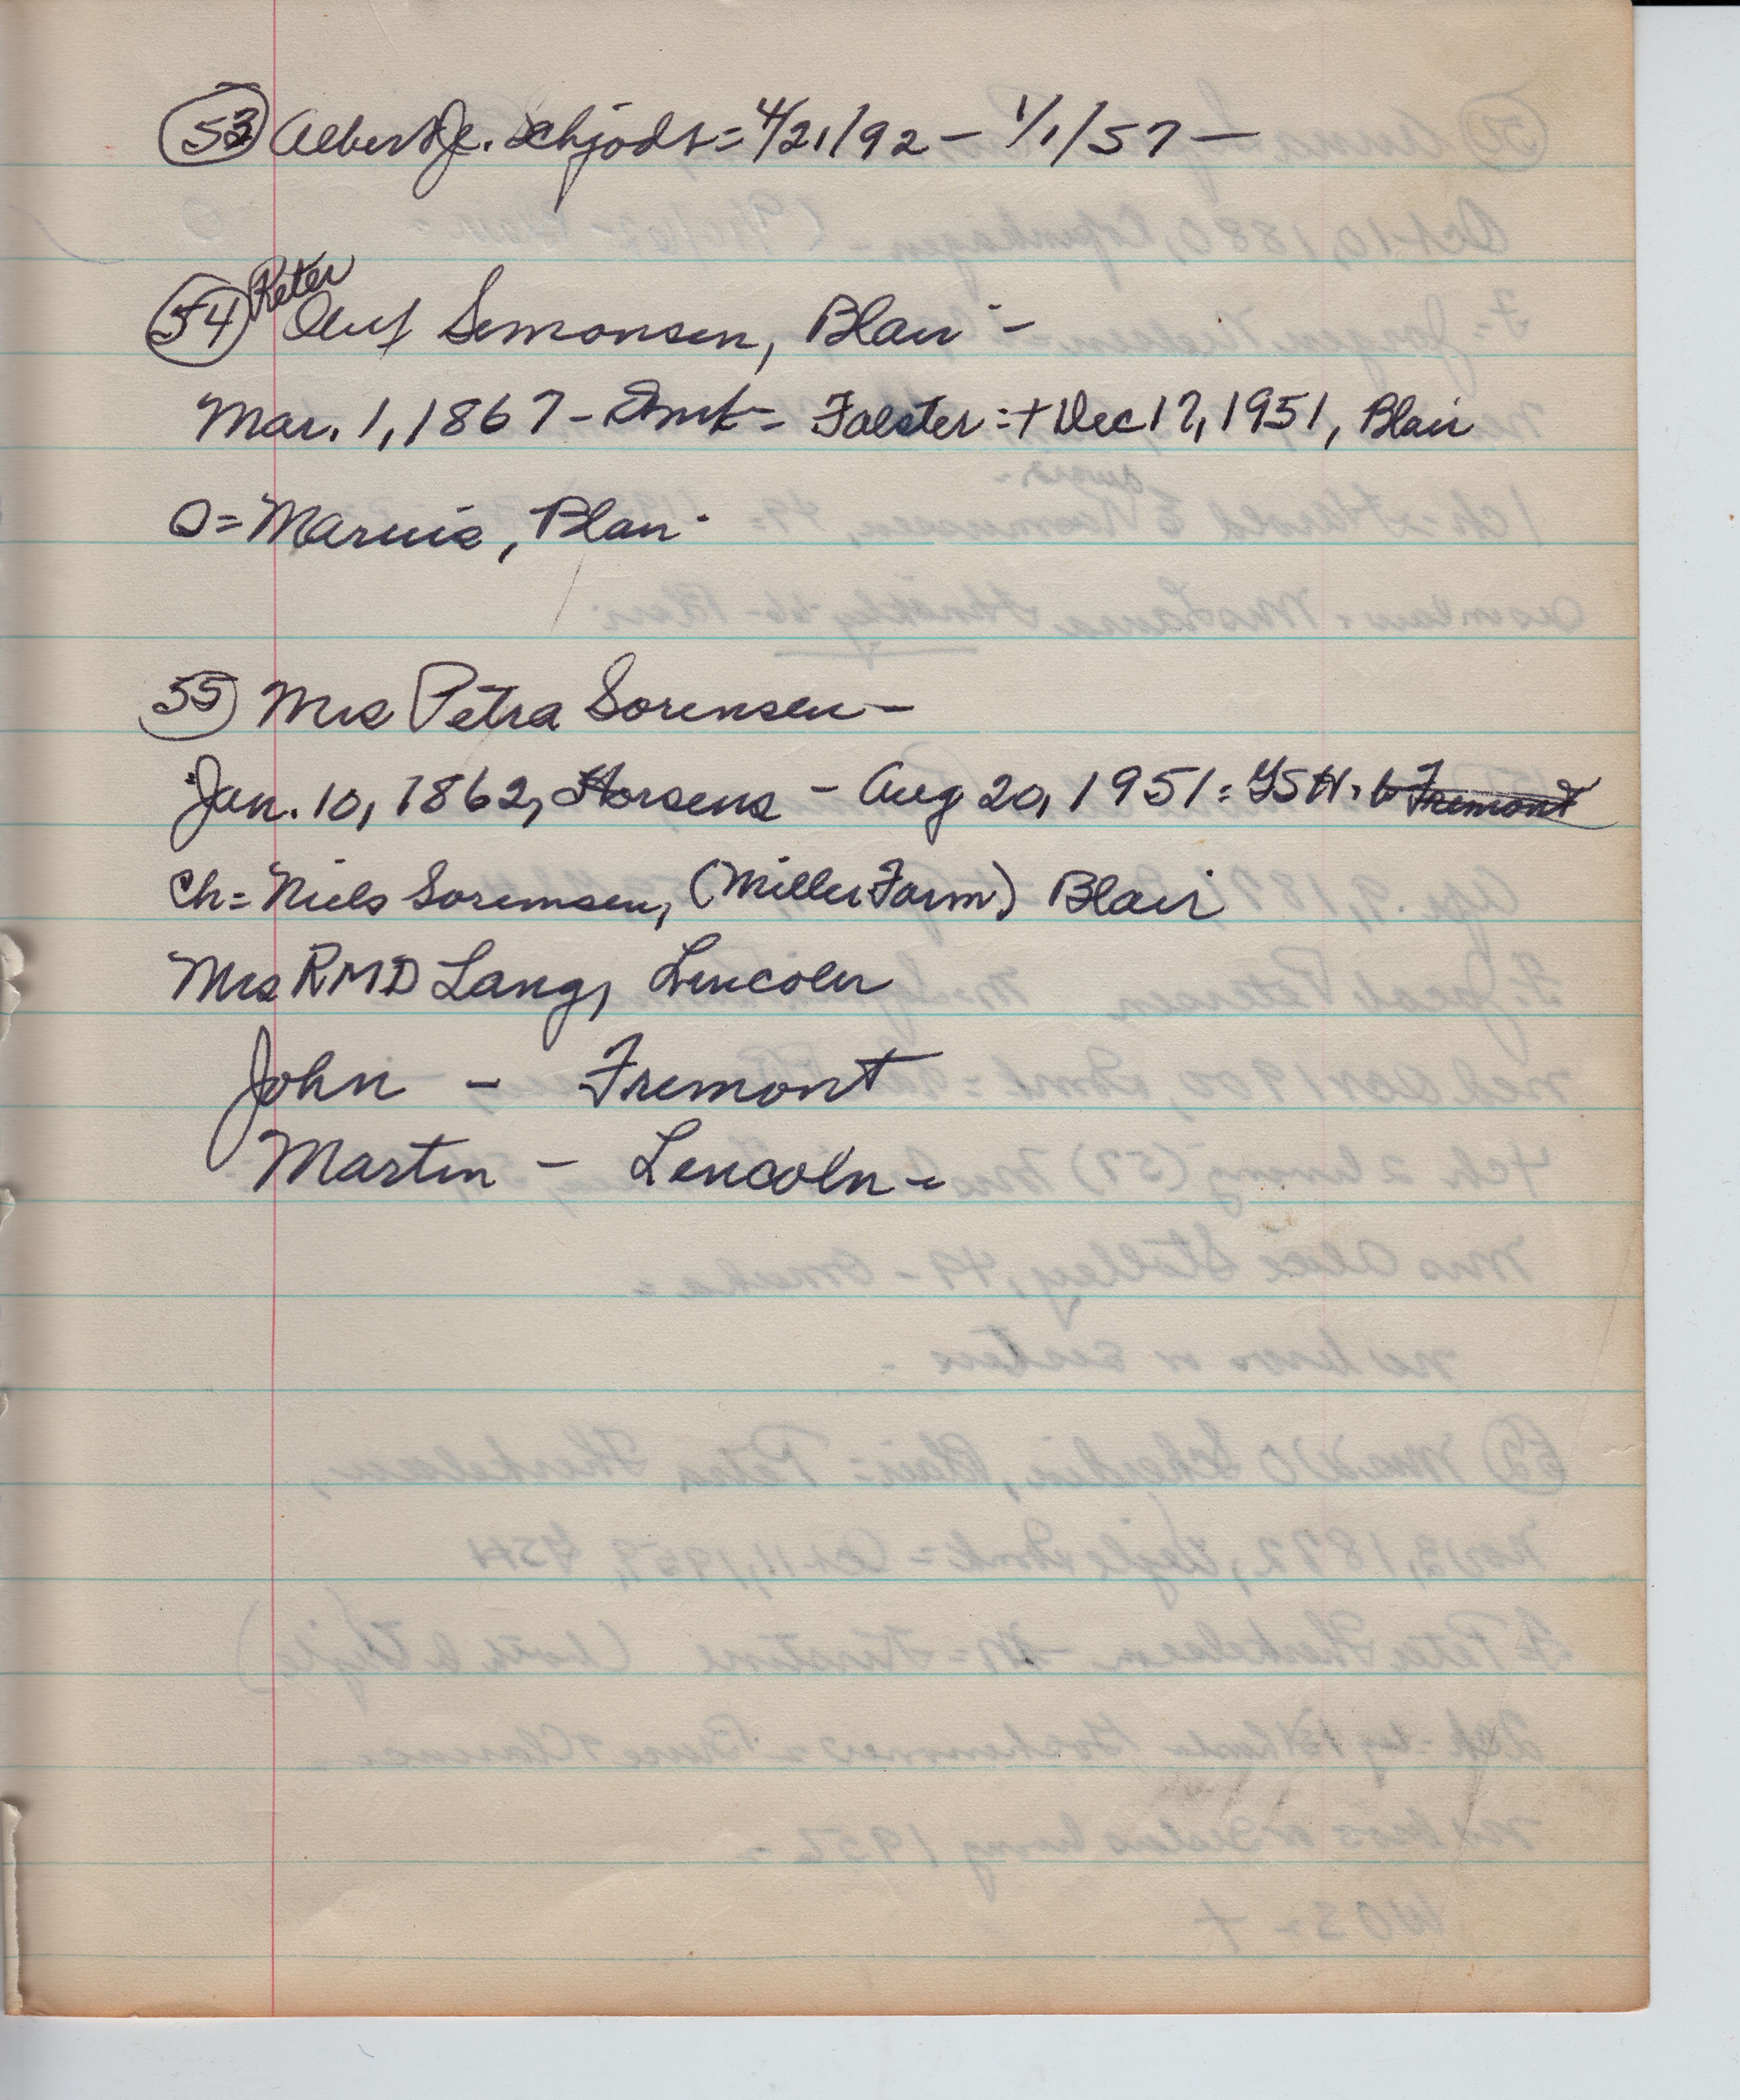 53 Albert Jc. Schjodt = 4/21/92 - 1/1/57 -
Peter
54 Oluf Simonsen, Blair -
Mar. 1, 1867 - Dmk = Falster = + Dec 17, 1951, Blair
O = Marius, Blair
55 Mrs Petra Sorensen -
Jan. 10, 1862, Horsens - Aug 20, 1951 = GSH. Fremont
Ch = Niels Sorensen, (Miller Farm) Blair
Mrs RMD Lang, Lincoln
John - Fremont
Martin - Lincoln -